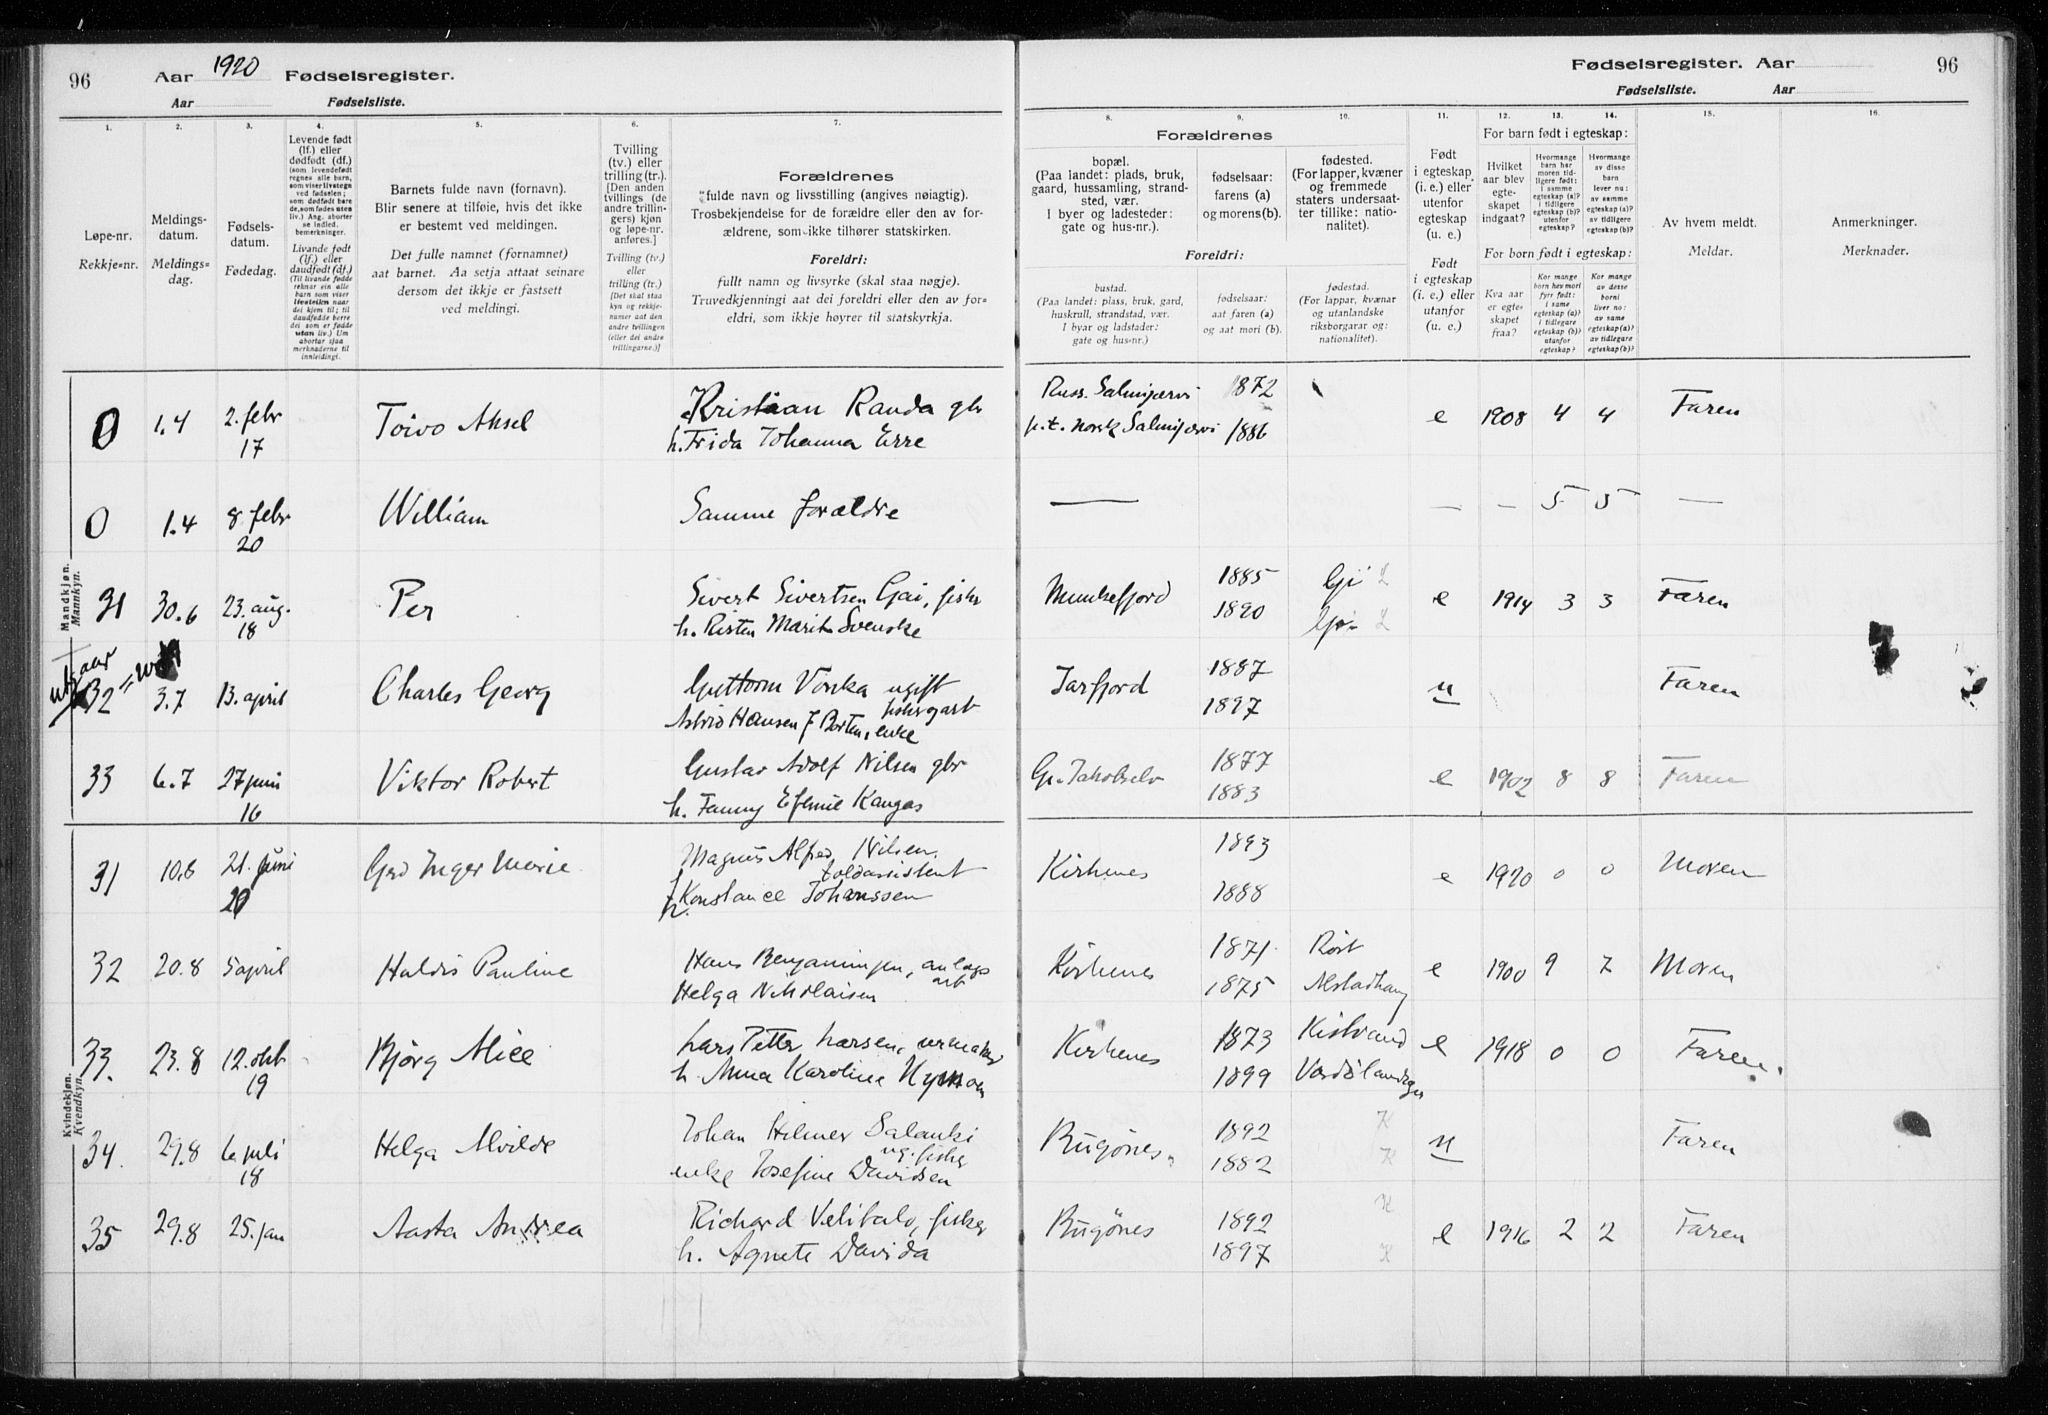 96 Aar 1920 Fødselsregister.
Aar Fødselsliste.
Fødselsregister. Aar 96
Fødselsliste. Aar
1. 2. 3. 4. 5. 6. 7.
Løpe-nr.
Rekkje-nr.
Meldings-
datum.
Meldings-
dag.
Fødsels-
datum.
Fødedag.
Levende født
(lf.) eller
dødfødt (df.)
(som levendefødt
regnes alle barn,
som viser livstegn
ved fødselen;
som dødfødt bare
de, som fødes uten
liv.) Ang. aborter
se indled.
bemerkninger.
Livande født
(lf.) eller
daudfødt (df.)
(Til livande fødde
reknar ein alle
born som viser
livsteikn naar
dei kjem til; til
daudfødde berre
dei som er fødde
utan liv.) Um
abortar sjaa
merknaderne til
innleidingi.
Barnets fulde navn (fornavn).
Blir senere at tilføie, hvis det ikke
er bestemt ved meldingen.
Det fulle namnet (fornamnet)
aat barnet. Aa setja attaat seinare
dersom det ikkje er fastsett
ved meldingi.
Tvilling
(tv.) eller
trilling (tr.).
[Den anden
tvillings (de
andre trillin-
gers) kjøn
og løpe-nr.
anføres.]
Tvilling (tv.)
eller
trilling (tr.)
[Det skal staa
kyn og rekkje-
numer aat den
andre tvillingen
(eller dei andre
trillingarne.)]
Forældrenes
fulde navn og livsstilling (angives nøiagtig).
Trosbekjendelse for de forældre eller den av for-
ældrene, som ikke tilhører statskirken.
Foreldri:
fullt namn og livsyrke (skal staa nøgje).
Truvedkjenningi aat dei foreldri eller den av for-
eldri, som ikkje høyrer til statskyrkja.
8. 9. 10. 11. 12. 13. 14. 15. 16.
Forældrenes
bopæl.
(Paa landet: plads, bruk,
gaard, hussamling, strand-
sted, vær.
I byer og ladesteder:
gate og hus-nr.).
Foreldri:
bustad.
(Paa landet: plass, bruk, gard,
huskrull, strandstad, vær.
I byar og ladstader:
gate og hus-nr.)
fødselsaar:
farens (a)
og morens (b).
fødselsaar:
aat faren (a)
og aat mori (b).
fødested.
(For lapper, kvæner
og fremmede
staters undersaat-
ter tillike: natio-
nalitet).
fødestad.
(For lappar, kvænar
og utanlandske
riksborgarar og:
nationalitet).
Født
i egteskap
(i. e.) eller
utenfor
egteskap
(u. e.)
Født
i egteskap
(i. e.) eller
utanfor
(u. e.)
For barn født i egteskap:
Hvilket
aar blev
egte-
skapet
indgaat?
Hvormange
barn har
moren tid-
ligere født:
i samme
egteskap (a)?
i tidligere
egteskap (b)?
utenfor
egteskap?
Hvormange
av disse
barn
lever nu:
av samme
egteskap (a)?
av tidligere
egteskap (b)?
For born fødd i egteskap:
Kva aar
er egte-
skapet
fraa?
Kor mange
born hev mori
fyrr født:
i same
egteskap (a)?
i tidlegare
egteskap (b)?
utanfor
egteskap?
Kor mange
av desse
borni
liver no:
av same
egteskap (a)?
av tidlegare
egteskap (b)?
Av hvem meldt.
Meldar.
Anmerkninger.
Merknader.
Mandkjøn.
Mannkyn.
0 1.4 2. febr 17 Toivo Aksel Kristian Randa gbr
h. Frida Johanna Erre
Russ. Salmijærvi 1872
p.t. norsk Salmijærvi 1886 e 1908 4 4 Faren
0 1.4 8 febr 20 William Samme forældre
— — — 5 5 —
31 30.6 23. aug. 18 Per Sivert Sivertsen Gai, fisker
h. Risten Marit Svenske
Munkefjord 1885 1890 e 1914 3 3 Faren
utgaar
32 3.7 13. april Charles Georg Guttorm Vorka ugift
fiskergart
Astrid Hansen f Borten, enke
Jarfjord 1887 1897 u Faren
33 6.7 27 juni 16 Viktor Robert Gustav Adolf Nilsen gbr
h. Fanny Efemie Kangas
Gr. Jakobselv 1877 1883 e 1902 8 8 Faren
Kvindekjøn.
Kvendkyn.
31 10.6 21. juni 20 Gerd Inger Marie Magnus Alfred Nilsen,
toldassistent
h. Konstance Johanssen
Kirkenes 1893 1888 e 1920 0 0 Moren
32 20.8 5 april Haldis Pauline Hans Benjaminsen, anlegs
arb
Helga Nikolaisen
Kirkenes 1871 1875 Røst Alstadhaug e 1900 9 7 Moren
33. 23.8 12. okt 19 Bjørg Alice Lars Petter Larsen, urmaker
h. Anna Karoline Nyman
Kirkenes 1873 1899 Kistrand Vardølandsogn e 1918 0 0 Faren.
34. 29.8 6. juli 18 Helga Alvilde Johan Hilmer Salanki
ug. fisker
enke Josefine Davidsen
Bugønes 1892 1882 K K u Faren
35 29.8 25. jan Aasta Andrea Richard Velitalo, fisker
h. Agnete Davida
Bugønes 1892 1897 K K e 1916 2 2 Faren